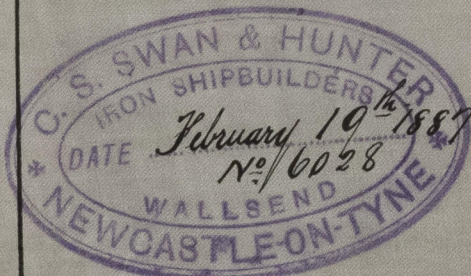 C. S. SWAN & HUNTER
IRON SHIPBUILDERS
DATE February 19th 1887
No 6028
WALLSEND
* NEWCASTLE-ON-TYNE *